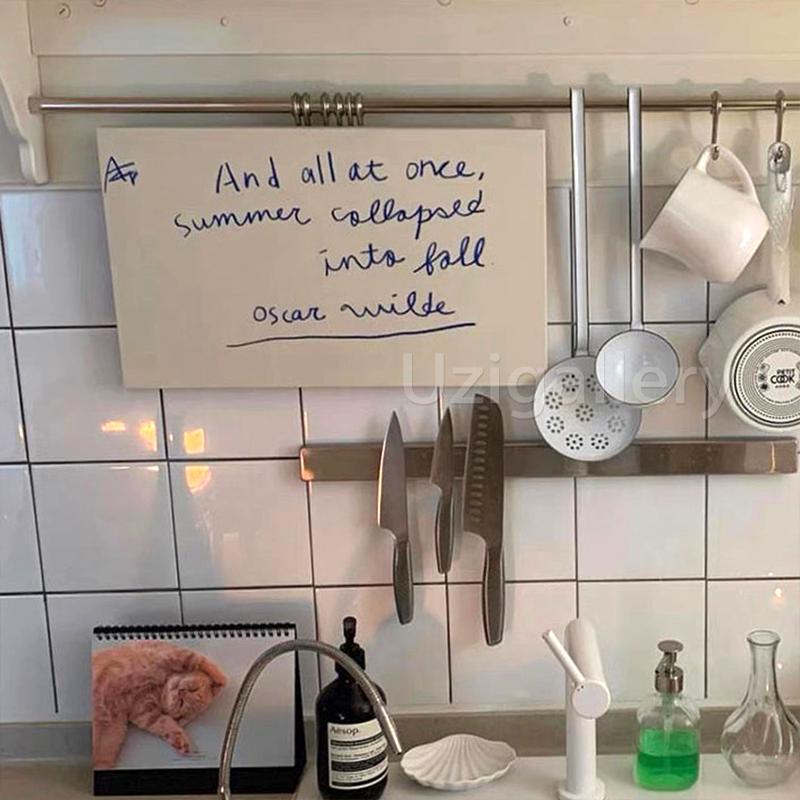 And all at once,
summer collapsed
into fall.
oscar wilde
Uzigallery
PETIT
COOK
Aēsop.